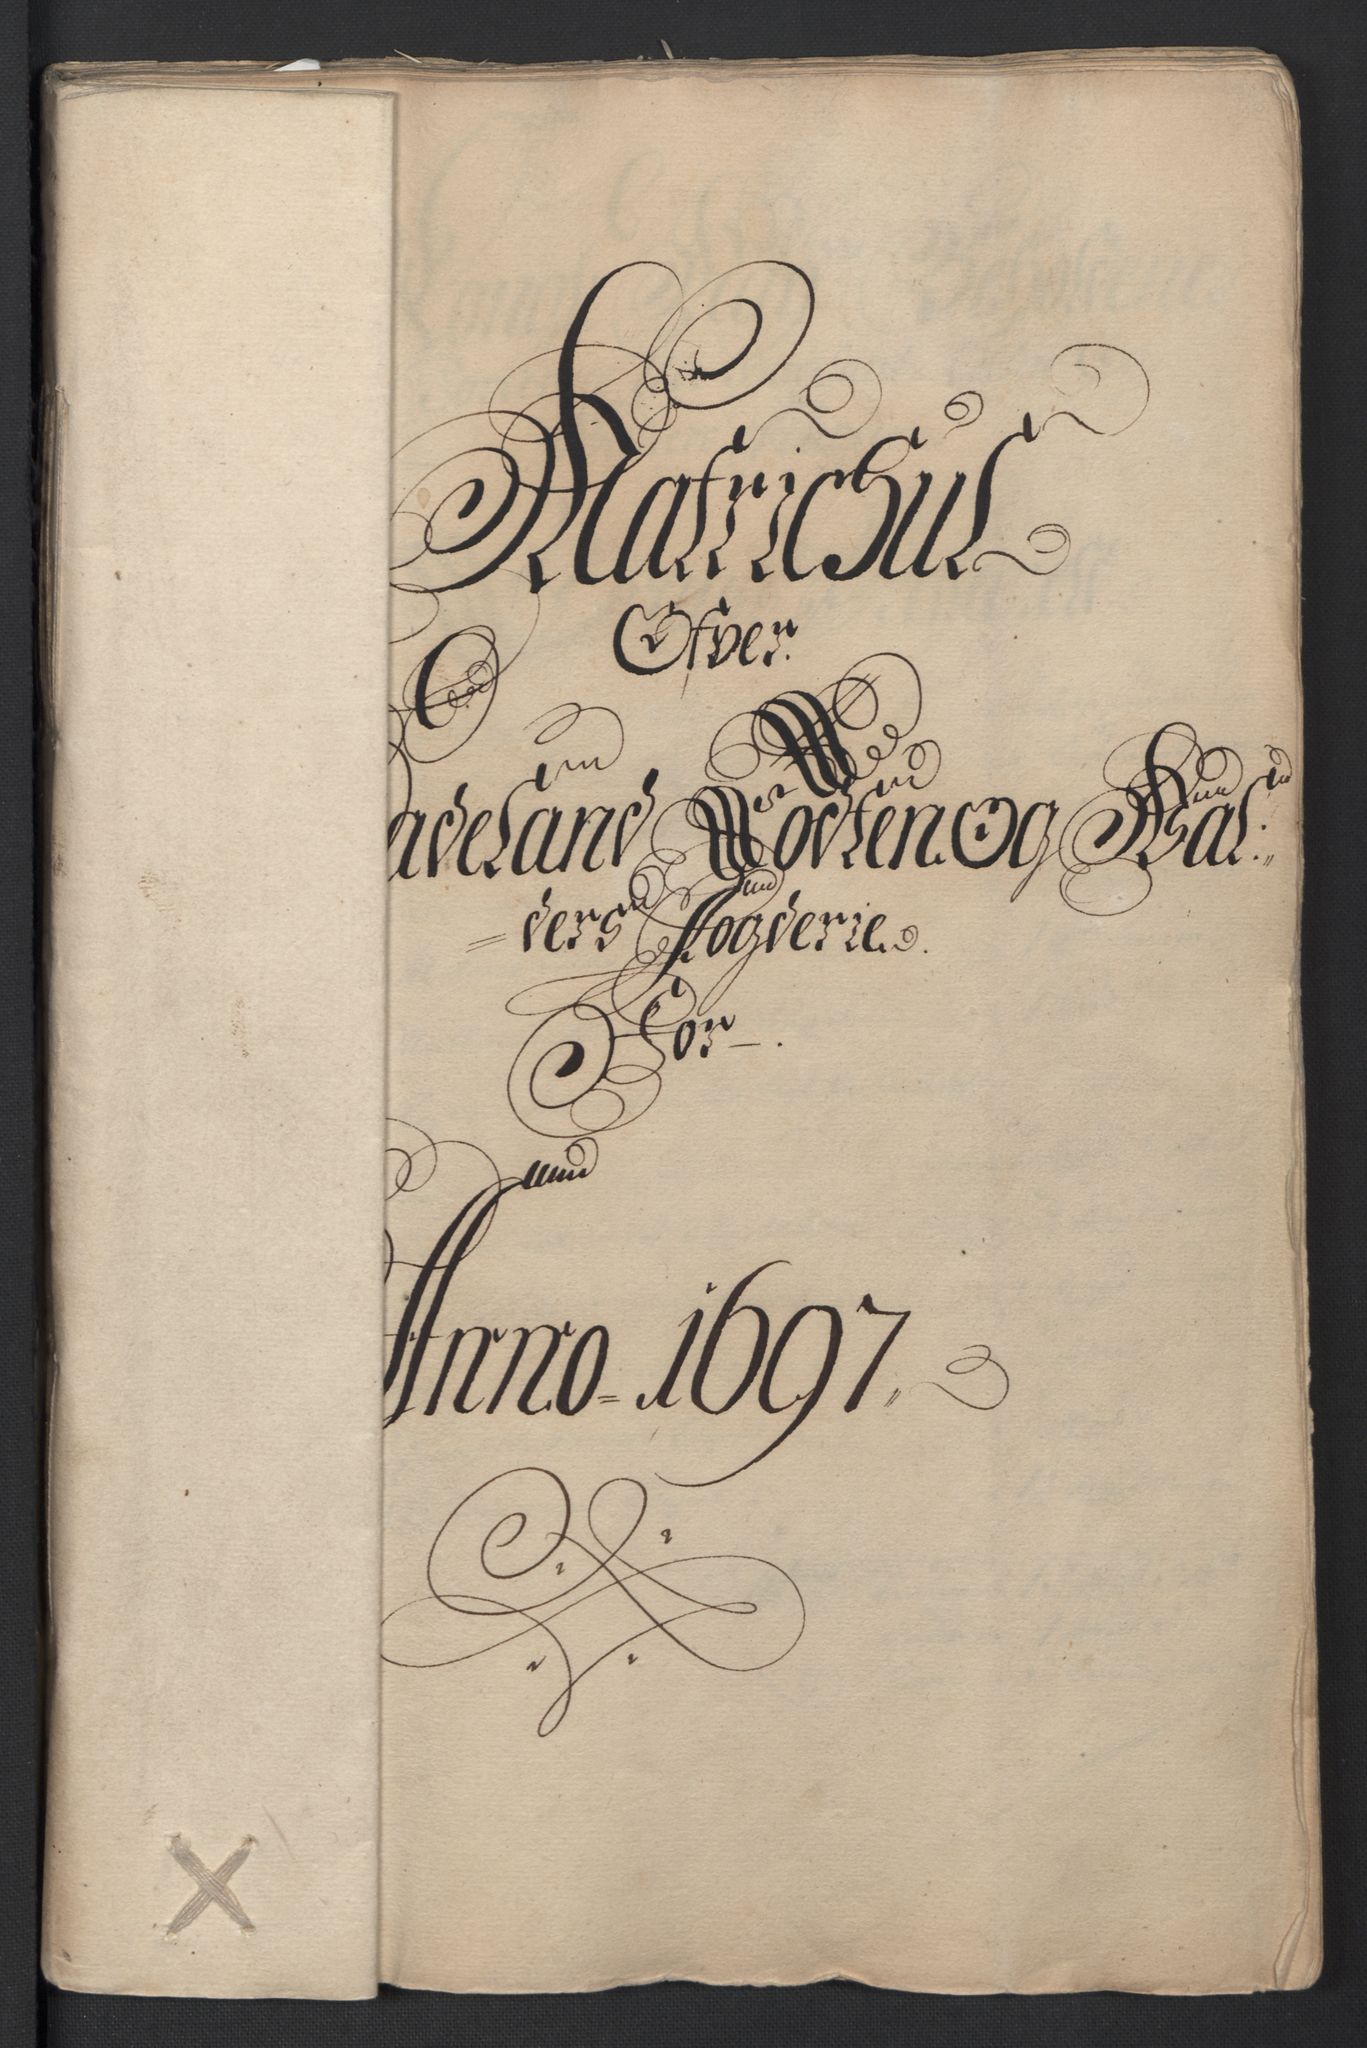 Matrichul
Ofver
adeland Todten Og Val:
=ders Fogderie.
For.
Anno= 1697.